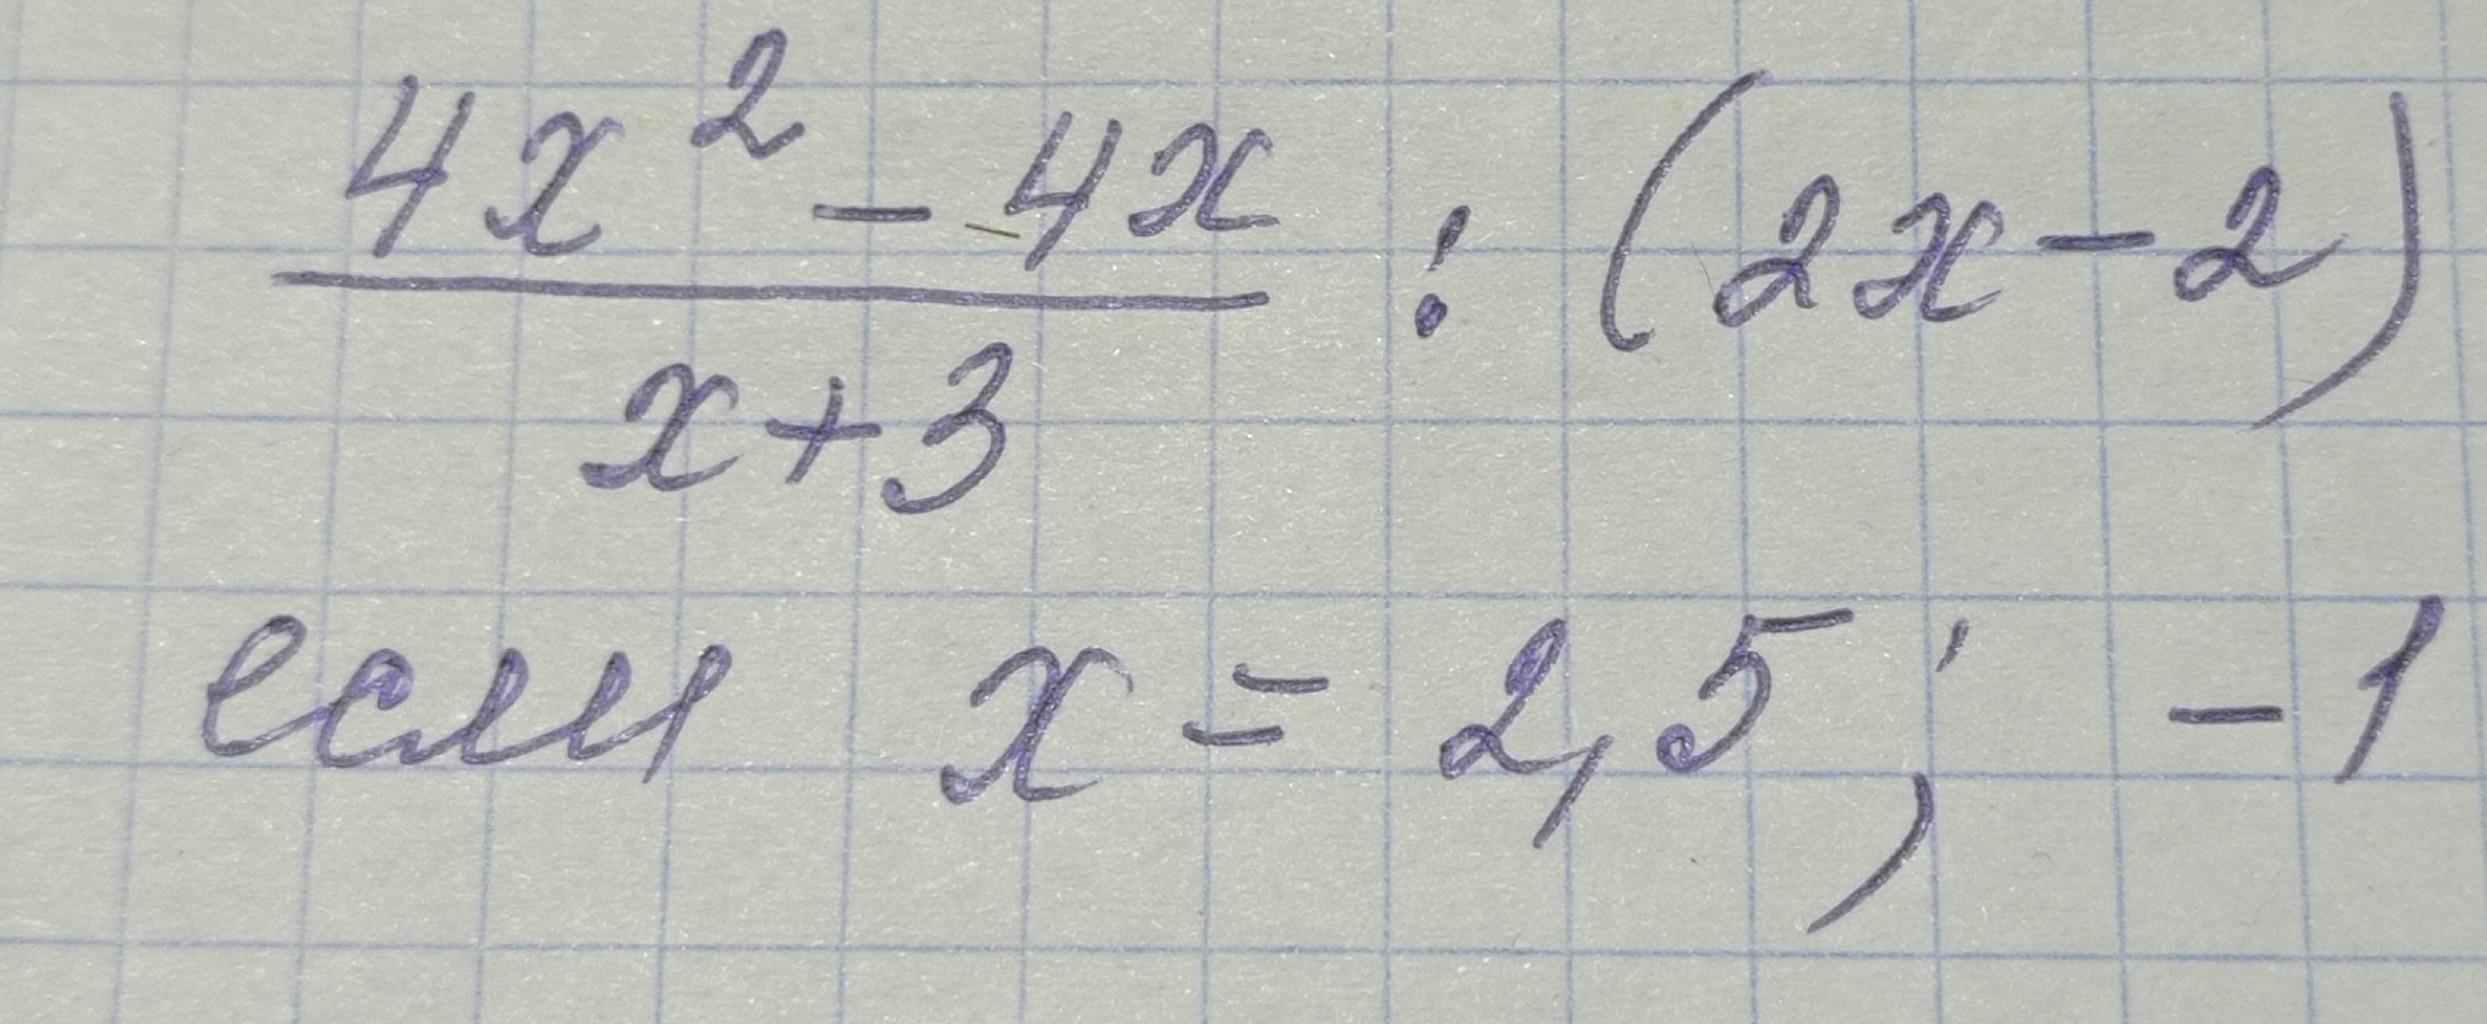 4x² - 4x
x + 3
: (2x - 2)
если x = 2,5; -1